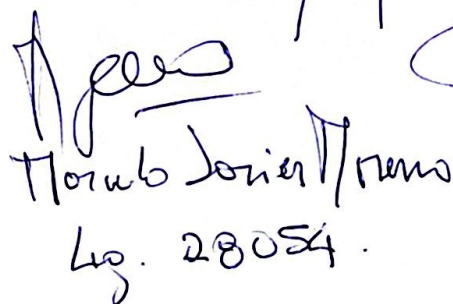 Marcelo Javier Moreno
Lg. 28054.